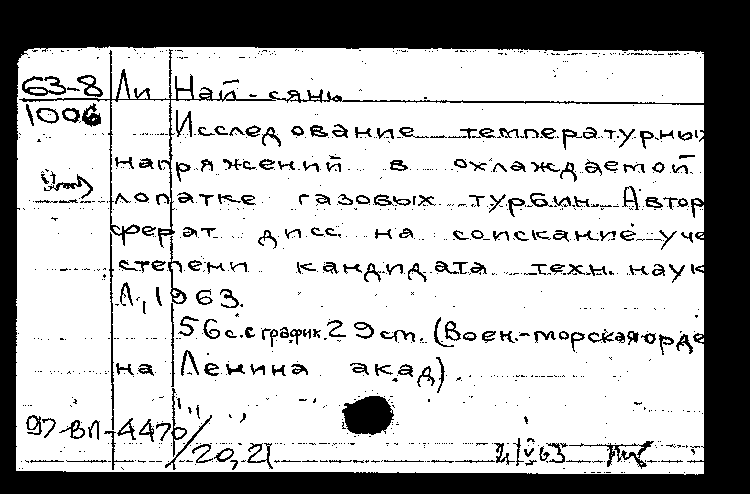 63-8 Ли Най-сянь
1006
Исследование температурных
напряжений в охлаждаемой
лопатке газовых турбин. Автор
ферат дисс. на соискание уче
степени кандидата техн. наук
Л., 1963.
56 с. с график. 29 см. (Воен.-морская орде
на Ленина акад).
97-ВЛ-4470/20,21